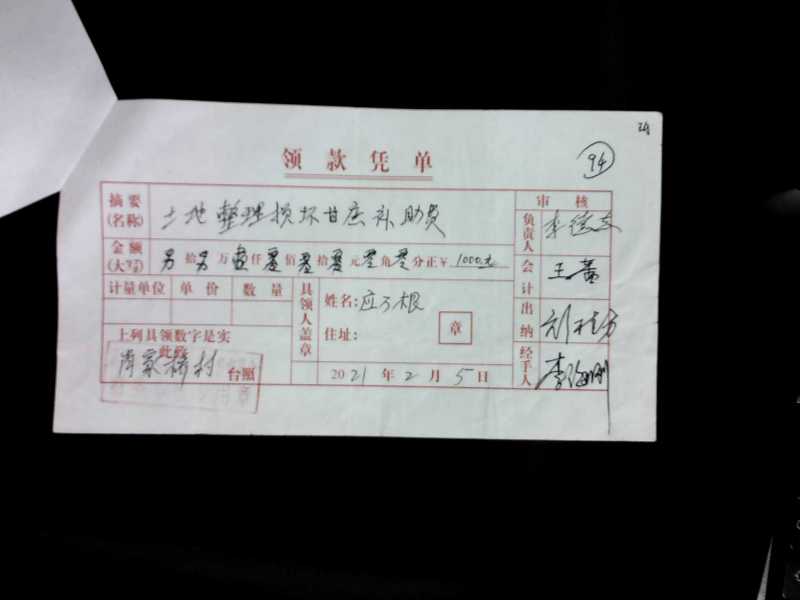 94
领款凭单
摘要(名称) 土地整理损坏甘蔗补助费
审核
负责人
金额(大写) 拾 万 壹仟零佰零拾零元零角零分正¥1000元
会计 王
计量单位 单价 数量
具领人盖章
姓名:应 根
住址: 章
出纳
上列具领数字是实
此致
肖家桥村 台照
2021年2月5日
经手人 李